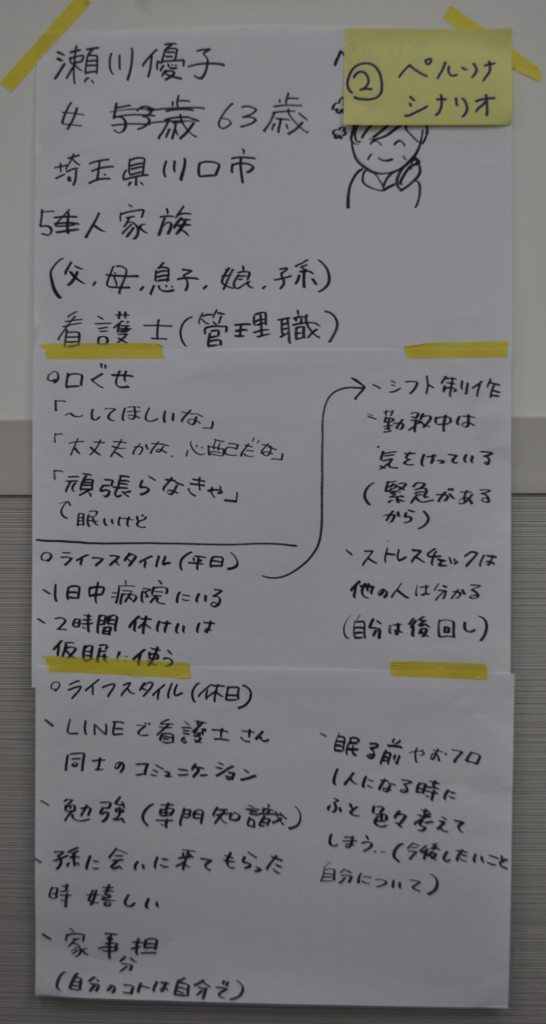 ② ペルソナ
シナリオ
瀬川優子
女 53歳 63歳
埼玉県川口市
5人家族
(父、母、息子、娘、孫)
看護士(管理職)
○口ぐせ
「〜してほしいな」
「大丈夫かな、心配だな」
「頑張らなきゃ」
眠いけど
○ライフスタイル(平日)
、1日中病院にいる
、2時間休けいは
仮眠に使う
、シフト制作
、勤務中は
気をはっている
(緊急がある
から)
、ストレスチェックは
他の人は分かる
(自分は後回し)
○ライフスタイル(休日)
、LINEで看護士さん
同士のコミュニケーション
、勉強(専門知識)
、孫に会いに来てもらった
時嬉しい
、家事分担
(自分のコトは自分で)
、眠る前やおフロ
1人になる時に
ふと色々考えて
しまう..(今後したいこと
自分について)